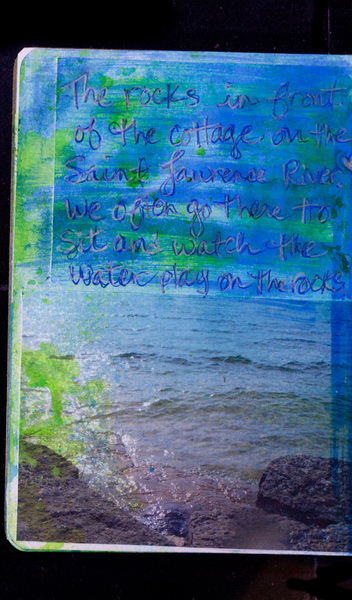 The rocks in front
of the cottage on the
Saint Lawrence River.
We often go there to
sit and watch the
water play on the rocks.